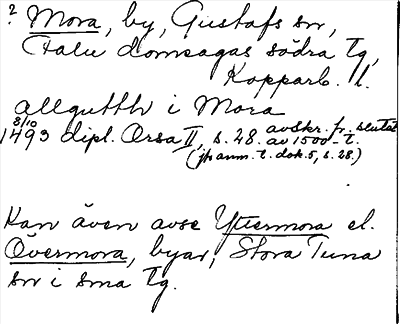 ? Mora, by, Gustafs sn,
Falu domsagas södra tg,
Kopparb. l.
allgutth i Mora
1493 8/10 dipl. Orsa II, s. 48. avskr. fr. slutet av 1500-t.
(jfr anm. t. dok. 5, s. 28.)
Kan även avse Yttermora el.
Övermora, byar, Stora Tuna
sn i sma tg.